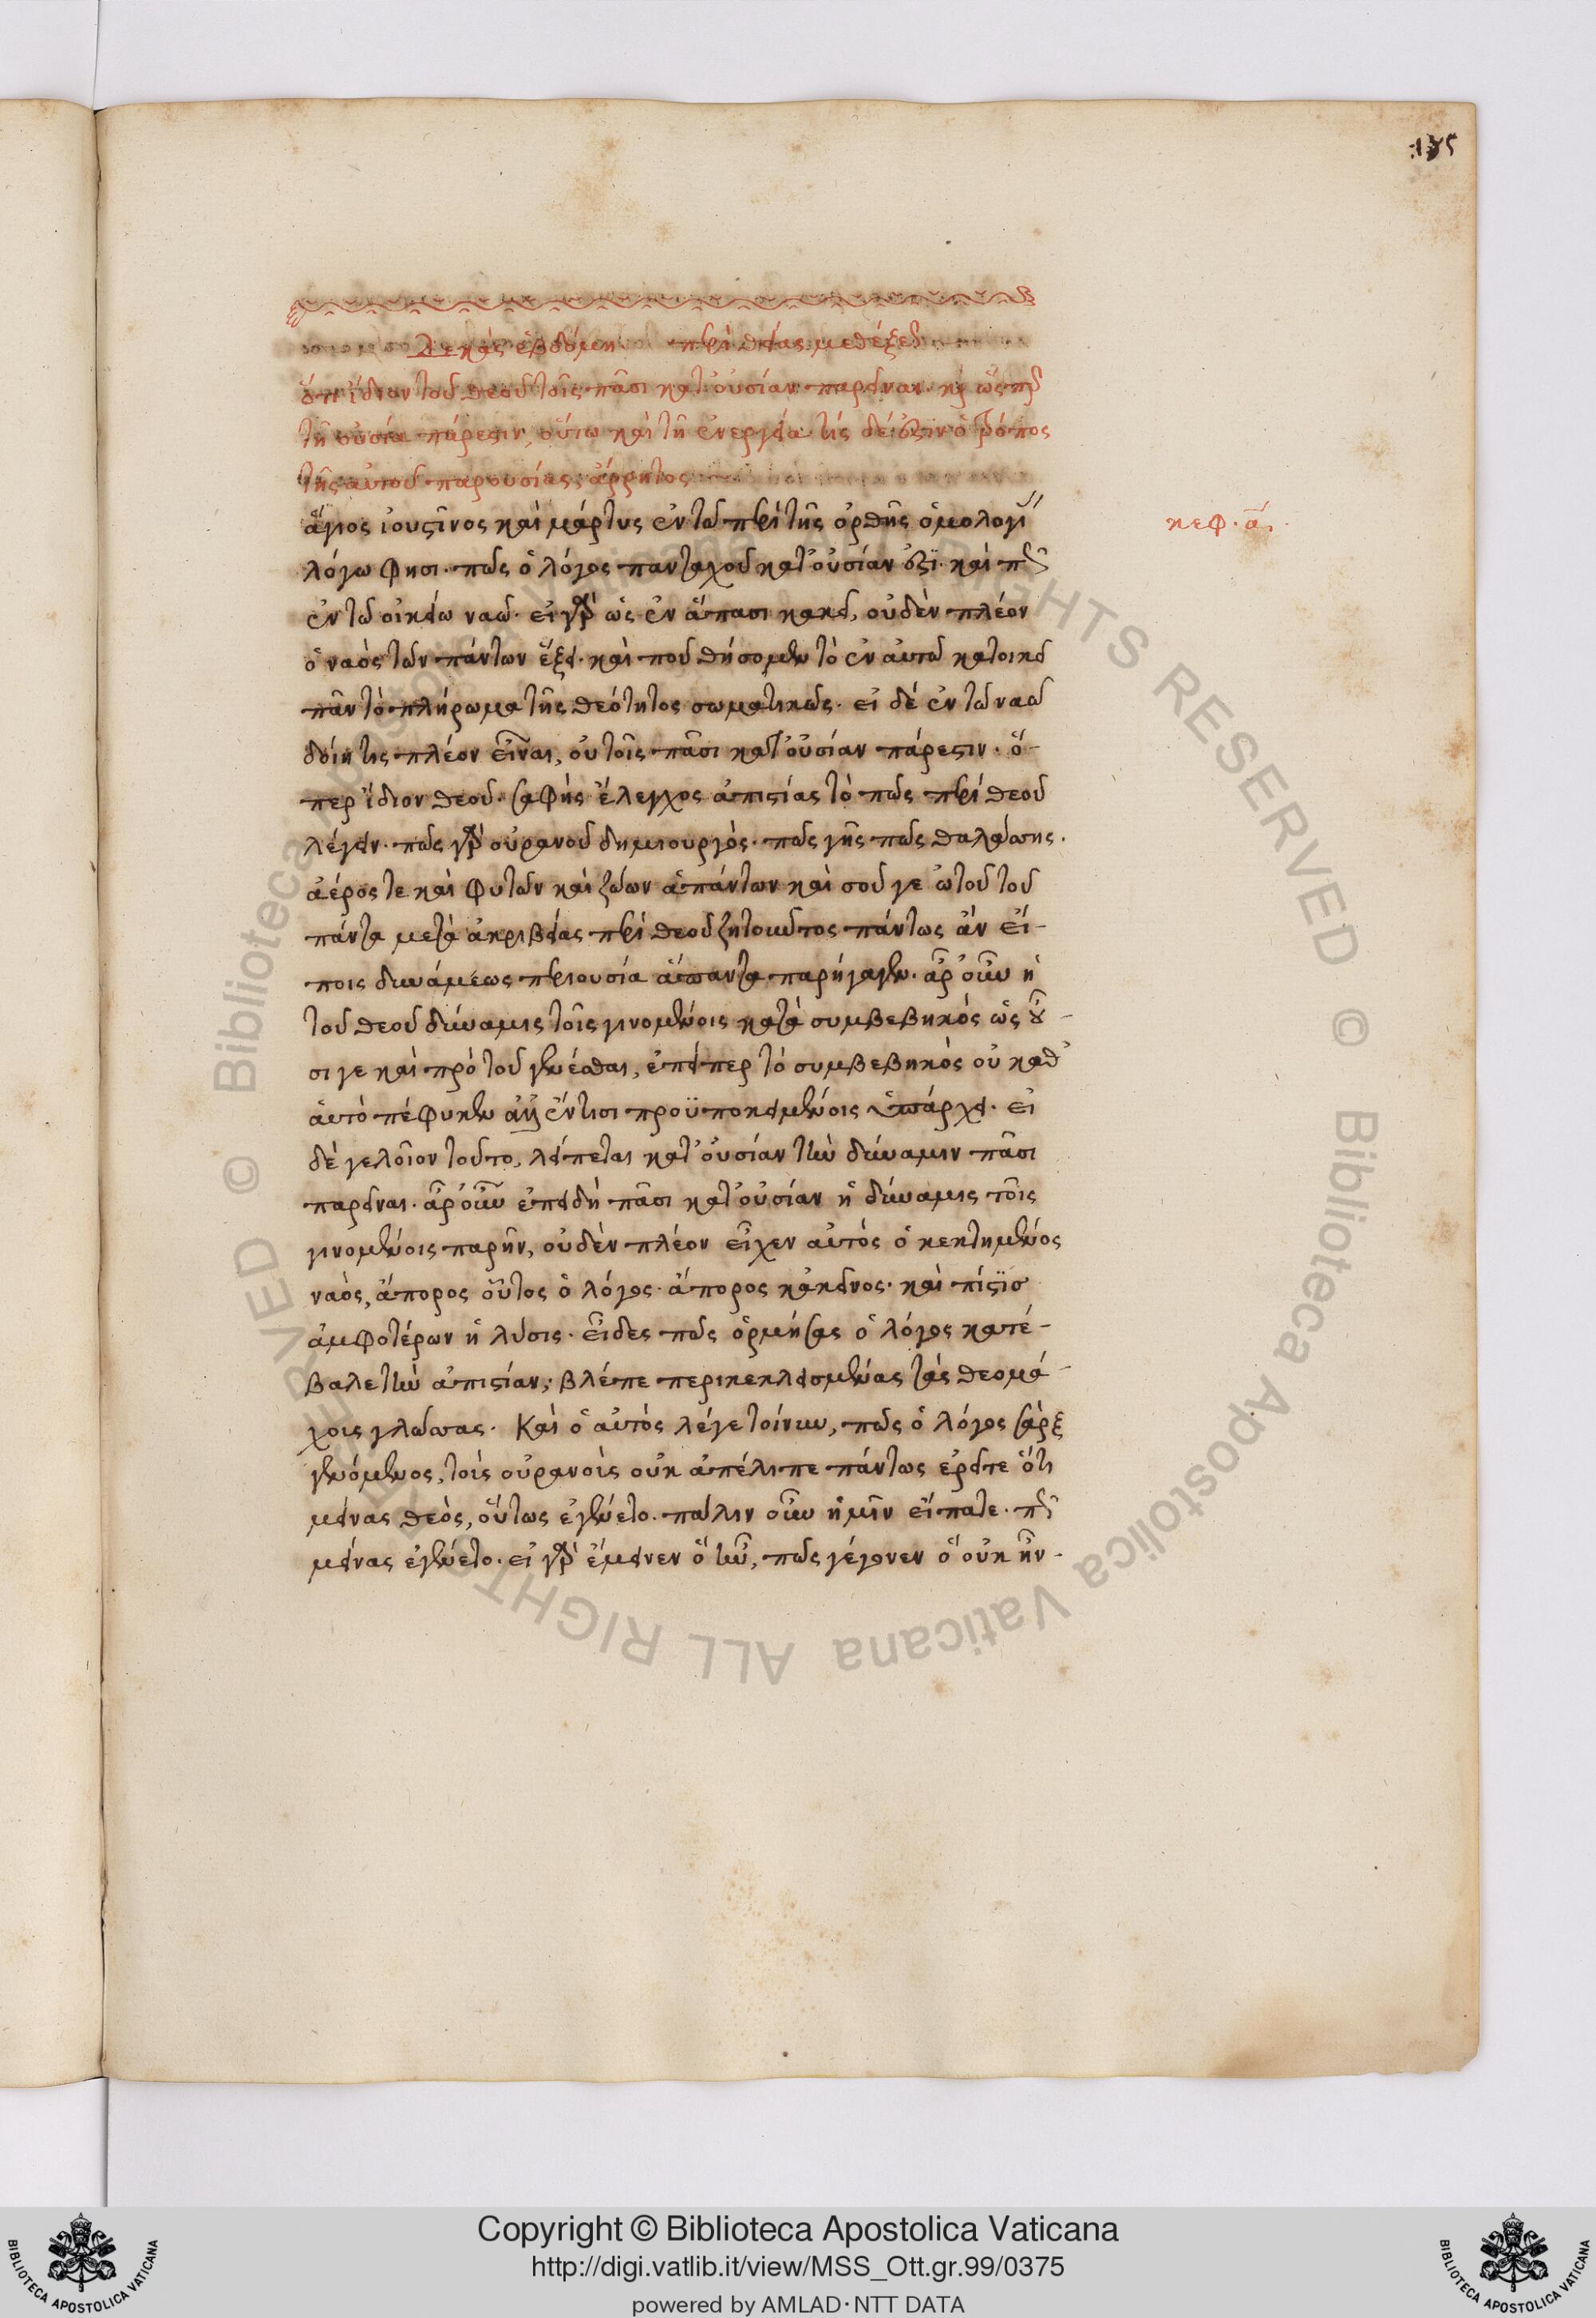 :185
Δεκὰς ἑβδόμη. περὶ θείας μεθέξεως
ὅτι ἴδιον τοῦ θεοῦ τοῖς πᾶσι κατ' οὐσίαν παρεῖναι. καὶ ὥσπερ
τῇ οὐσίᾳ πάρεστιν, οὕτω καὶ τῇ ἐνεργείᾳ. τίς δέ ἐστιν ὁ τρόπος
τῆς αὐτοῦ παρουσίας, ἄρρητος
ἅγιος ἰουστῖνος καὶ μάρτυς ἐν τῷ περὶ τῆς ὀρθῆς ὁμολογίας
κεφ. α.
λόγω φησι. πῶς ὁ λόγος πανταχοῦ κατ' οὐσίαν ἐστὶ. καὶ πῶς
ἐν τῷ οἰκείω ναῷ. εἰ γὰρ ὡς ἐν ἅπασι κακεῖ, οὐδὲν πλέον
ὁ ναὸς τῶν πάντων ἕξει. καὶ ποῦ θήσομεν τὸ ἐν αὐτῷ κατοικεῖ
πᾶν τὸ πλήρωμα τῆς θεότητος σωματικῶς. εἰ δέ ἐν τῶ ναῷ
δοίη τις πλέον εἶναι, οὐ τοῖς πᾶσι κατ' οὐσίαν πάρεστιν. ὅ-
περ ἴδιον θεοῦ. σαφὴς ἔλεγχος ἀπιστίας τὸ πῶς περὶ θεοῦ
λέγειν. πῶς γὰρ οὐρανοῦ δημιουργὸς. πῶς γῆς πῶς θαλάσσης.
ἀέρος τε καὶ φυτῶν καὶ ζώων ἁπάντων καὶ σοῦ γε αὐτοῦ τοῦ
πάντα μετὰ ἀκριβείας περὶ θεοῦ ζητοῦντος πάντως ἂν εἴ-
ποις δυνάμεως περιουσία ἅπαντα παρήγαγεν. ἆρ' οὖν ἡ
τοῦ θεοῦ δύναμις τοῖς γινομένοις κατὰ συμβεβηκὸς ὡς οὖ-
σι γε καὶ πρὸ τοῦ γενέσθαι, ἐπείπερ τὸ συμβεβηκὸς οὐ καθ'
ἁυτὸ πέφυκεν ἀλλ' ἔν τισι προϋποκειμένοις ὑπάρχει. εἰ
δὲ γελοῖον τοῦτο, λείπεται κατ' οὐσίαν τὴν δύναμιν πᾶσι
παρεῖναι. ἆρ' οὖν ἐπειδὴ πᾶσι κατ' οὐσίαν ἡ δύναμις τοῖς
γινομένοις παρῆν, οὐδὲν πλέον εἶχεν αὐτὸς ὁ κεκτημένος
ναὸς, ἄπορος οὗτος ὁ λόγος. ἄπορος κἀκεῖνος. καὶ πίστις
ἀμφοτέρων ἡ λύσις. εἶδες πῶς ὁρμήσας ὁ λόγος κατέ-
βαλε τὴν ἀπιστίαν; βλέπε περικεκλεισμένας τὰς θεομά-
χοις γλώσσας. Καὶ ὁ αὐτὸς λέγε τοίνυν, πῶς ὁ λόγος σὰρξ
γενόμενος, τοῖς οὐρανοῖς οὐκ ἀπέλιπε πάντως ἐρεῖτε ὅτι
μείνας θεὸς, οὕτως ἐγένετο. πάλιν οὖν ἡμῖν εἴπατε. πῶς
μείνας ἐγένετο. εἰ γὰρ ἔμεινεν ὃ ἦν, πῶς γέγονεν ὃ οὐκ ἦν.
Copyright © Biblioteca Apostolica Vaticana
http://digi.vatlib.it/view/MSS_Ott.gr.99/0375
powered by AMLAD·NTT DATA
© Biblioteca Apostolica Vaticana ALL RIGHTS RESERVED © Biblioteca Apostolica Vaticana ALL RIGHTS RESERVED
BIBLIOTECA APOSTOLICA VATICANA
BIBLIOTECA APOSTOLICA VATICANA